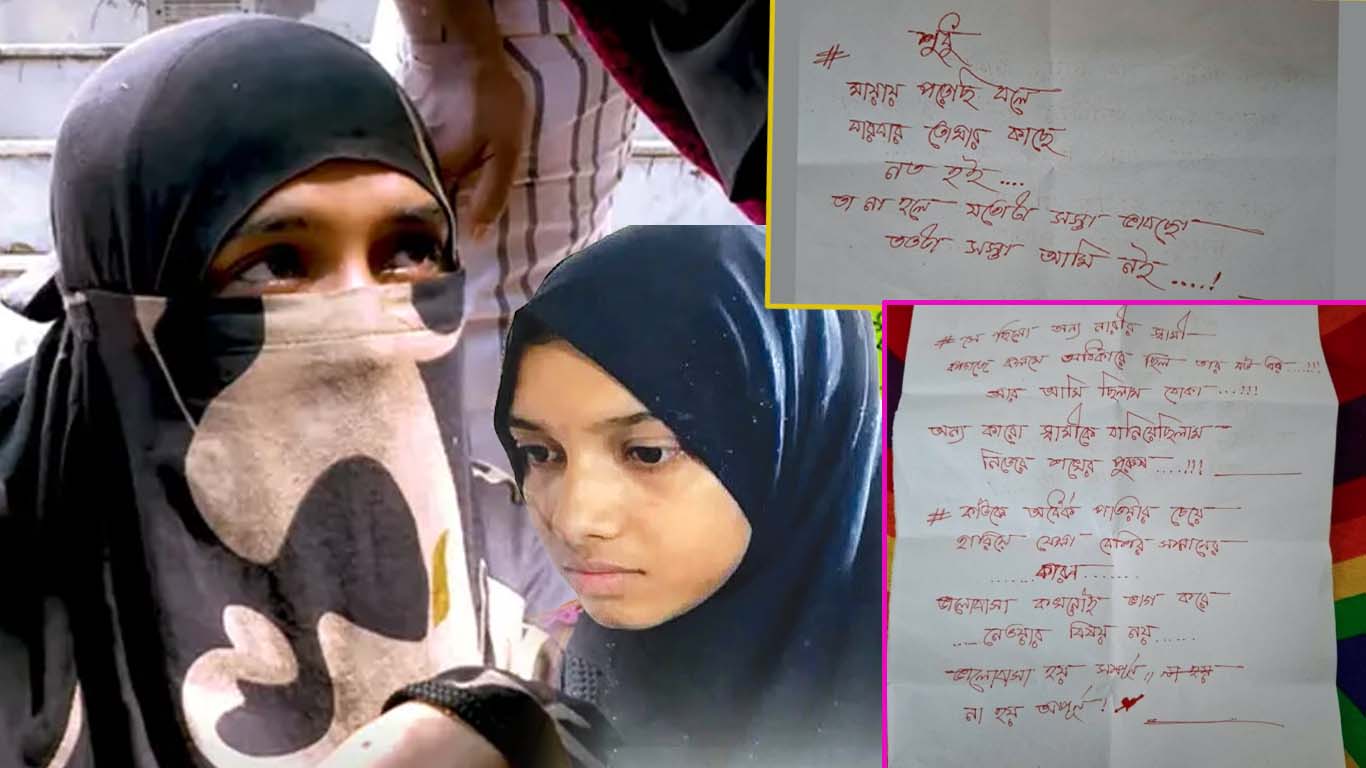 # শুধু
মায়ায় পরেছি বলে
বারবার তোমার কাছে
নত হই....
তা না হলে যতোটা সস্তা ভাবছো
ততটা সস্তা আমি নই.....!
# সে ছিলো অন্য নারীর স্বামী
কাগজে কলমে অধিকারে ছিল তার
আর আমি ছিলাম বোকা....!!!
অন্য কারো স্বামীকে বানিয়েছিলাম
নিজের শখের পুরুষ.....!!!
# কাউকে অর্ধেক পাওয়ার চেয়ে
হারিয়ে ফেলা বেশির সম্মানের
.......কারন.......
ভালোবাসা কখনোই ভাগ করে
....নেওয়ার বিষয় নয়......
ভালোবাসা হয় সম্পূর্ণ,,
না হয় অপূর্ণ!